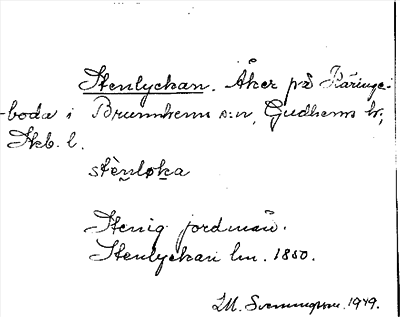 Stenlyckan. Åker på Käringe-
-boda i Brunnhem s:n, Gudhems hr,
Skb. l.
stènloka
Stenig jordmån.
Stenlyckan lm. 1850.
I.M. Svenningsson. 1949.